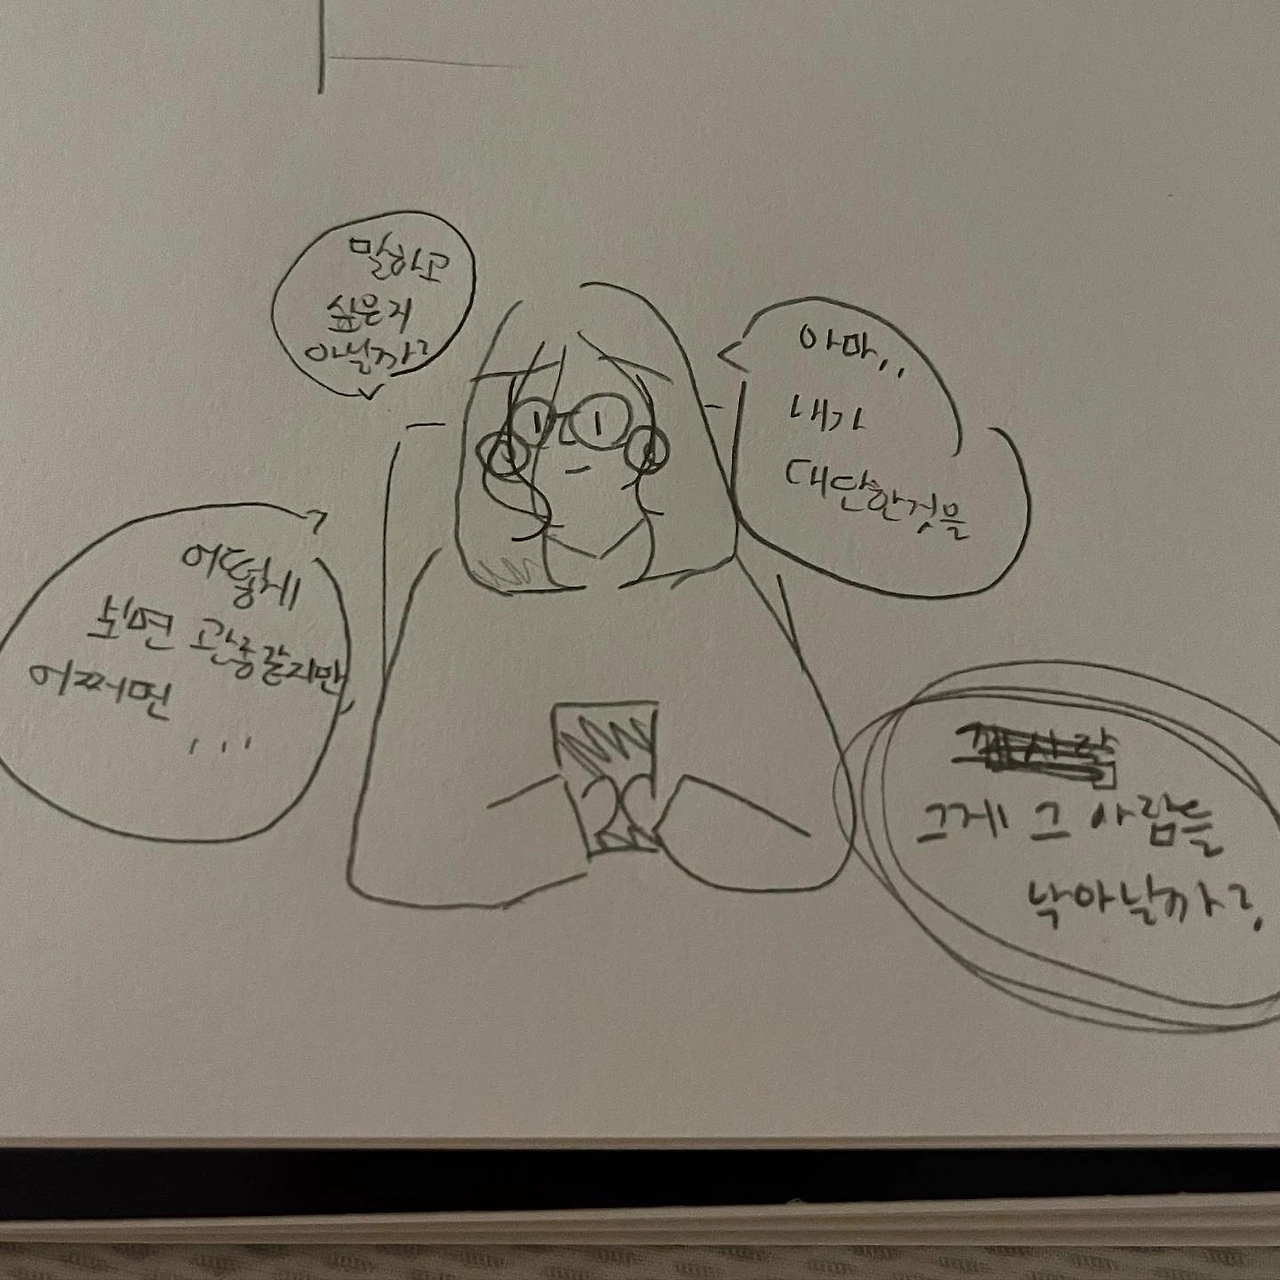 말하고
싶은지
아닐까?
아마..
내가
대단한것을
어떻게
보면 관종같지만
어쩌면
...
그게 그 사람들
낙아날까?